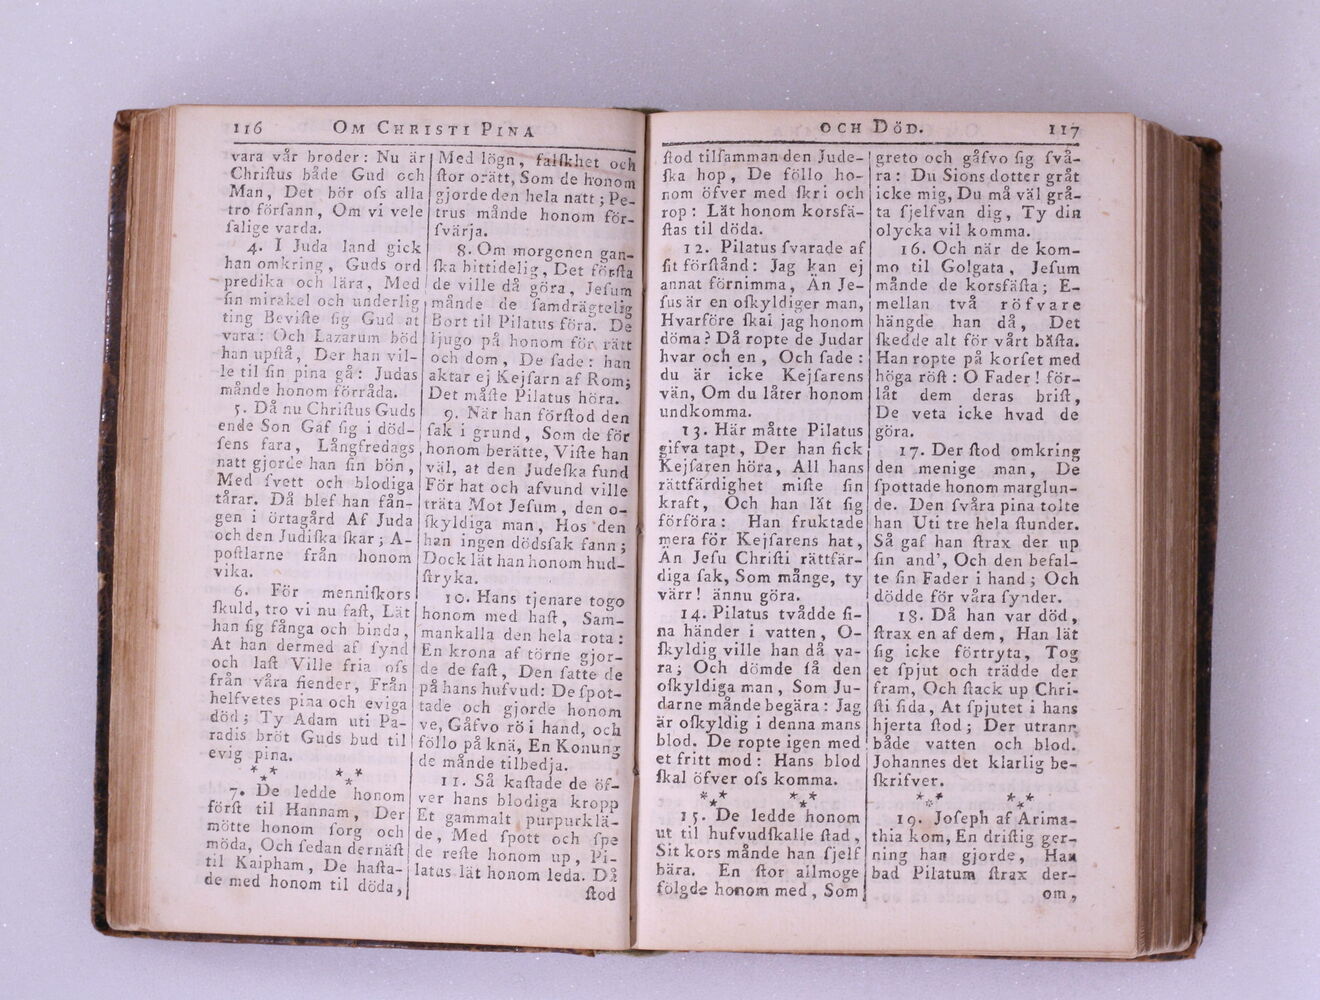 116 OM CHRISTI PINA
vara vår broder: Nu är
Chriſtus både Gud och
Man, Det bör oſs alla
tro förſann, Om vi vele
ſalige varda.
4. I Juda land gick
han omkring, Guds ord
predika och lära, Med
ſin mirakel och underlig
ting Beviſte ſig Gud at
vara: Och Lazarum böd
han upſtå, Der han vil-
le til ſin pina gå: Judas
månde honom förråda.
5. Då nu Chriſtus Guds
ende Son Gaf ſig i död-
ſens fara, Långfredags
natt gjorde han ſin bön,
Med ſvett och blodiga
tårar. Då blef han fån-
gen i örtagård Af Juda
och den Judiſka ſkar; A-
poſtlarne från honom
vika.
6. För menniſkors
ſkuld, tro vi nu faſt, Lät
han ſig fånga och binda,
At han dermed af ſynd
och laſt Ville fria oſs
från våra fiender, Från
helfvetes pina och eviga
död; Ty Adam uti Pa-
radis bröt Guds bud til
evig pina.
*** ***
7. De ledde honom
förſt til Hannam, Der
mötte honom ſorg och
möda, Och ſedan dernäſt
til Kaipham, De haſta-
de med honom til döda,
Med lögn, falſkhet och
ſtor orätt, Som de honom
gjorde den hela natt; Pe-
trus månde honom för-
ſvärja.
8. Om morgonen gan-
ſka bittidelig, Det förſta
de ville då göra, Jeſum
månde de ſamdrägtelig
Bort til Pilatus föra. De
ljugo på honom för rätt
och dom, De ſade: han
aktar ej Kejſarn af Rom;
Det måſte Pilatus höra.
9. När han förſtod den
ſak i grund, Som de för
honom berätte, Viſte han
väl, at den Judeſka fund
För hat och afvund ville
träta Mot Jeſum, den o-
ſkyldiga man, Hos den
han ingen dödsſak fann;
Dock lät han honom hud-
ſtryka.
10. Hans tjenare togo
honom med haſt, Sam-
mankalla den hela rota:
En krona af törne gjor-
de de faſt, Den ſatte de
på hans hufvud: De ſpot-
tade och gjorde honom
ve, Gåfvo rö i hand, och
föllo på knä, En Konung
de månde tilbedja.
11. Så kaſtade de öf-
ver hans blodiga kropp
Et gammalt purpurklä-
de, Med ſpott och ſpe
de reſte honom up, Pi-
latus lät honom leda. Då
ſtod
OCH DÖD. 117
ſtod tilſamman den Jude-
ſka hop, De föllo ho-
nom öfver med ſkri och
rop: Lät honom korsfä-
ſtas til döda.
12. Pilatus ſvarade af
ſit förſtånd: Jag kan ej
annat förnimma, Än Je-
ſus är en oſkyldiger man,
Hvarföre ſkal jag honom
döma? Då ropte de Judar
hvar och en, Och ſade:
du är icke Kejſarens
vän, Om du låter honom
undkomma.
13. Här måtte Pilatus
gifva tapt, Der han fick
Kejſaren höra, All hans
rättfärdighet miſte ſin
kraft, Och han lät ſig
förföra: Han fruktade
mera för Kejſarens hat,
Än Jeſu Chriſti rättfär-
diga ſak, Som månge, ty
värr! ännu göra.
14. Pilatus tvådde ſi-
na händer i vatten, O-
ſkyldig ville han då va-
ra; Och dömde ſå den
oſkyldiga man, Som Ju-
darne månde begära: Jag
är oſkyldig i denna mans
blod. De ropte igen med
et fritt mod: Hans blod
ſkal öfver oſs komma.
*** ***
15. De ledde honom
ut til hufvudſkalle ſtad,
Sit kors månde han ſjelf
bära. En ſtor allmoge
fölgde honom med, Som
greto och gåfvo ſig ſvå-
ra: Du Sions dotter gråt
icke mig, Du må väl grå-
ta ſjelfvan dig, Ty din
olycka vil komma.
16. Och när de kom-
mo til Golgata, Jeſum
månde de korsfäſta; E-
mellan två röfvare
hängde han då, Det
ſkedde alt för vårt bäſta.
Han ropte på korſet med
höga röſt: O Fader! för-
låt dem deras briſt,
De veta icke hvad de
göra.
17. Der ſtod omkring
den menige man, De
ſpottade honom marglun-
de. Den ſvåra pina tolte
han Uti tre hela ſtunder.
Så gaf han ſtrax der up
ſin and', Och den befal-
te ſin Fader i hand; Och
dödde för våra ſynder.
18. Då han var död,
ſtrax en af dem, Han lät
ſig icke förtryta, Tog
et ſpjut och trädde der
fram, Och ſtack up Chri-
ſti ſida, At ſpjutet i hans
hjerta ſtod; Der utrann
både vatten och blod.
Johannes det klarlig be-
ſkrifver.
*** ***
19. Joſeph af Arima-
thia kom, En driſtig ger-
ning han gjorde, Han
bad Pilatum ſtrax der-
om,